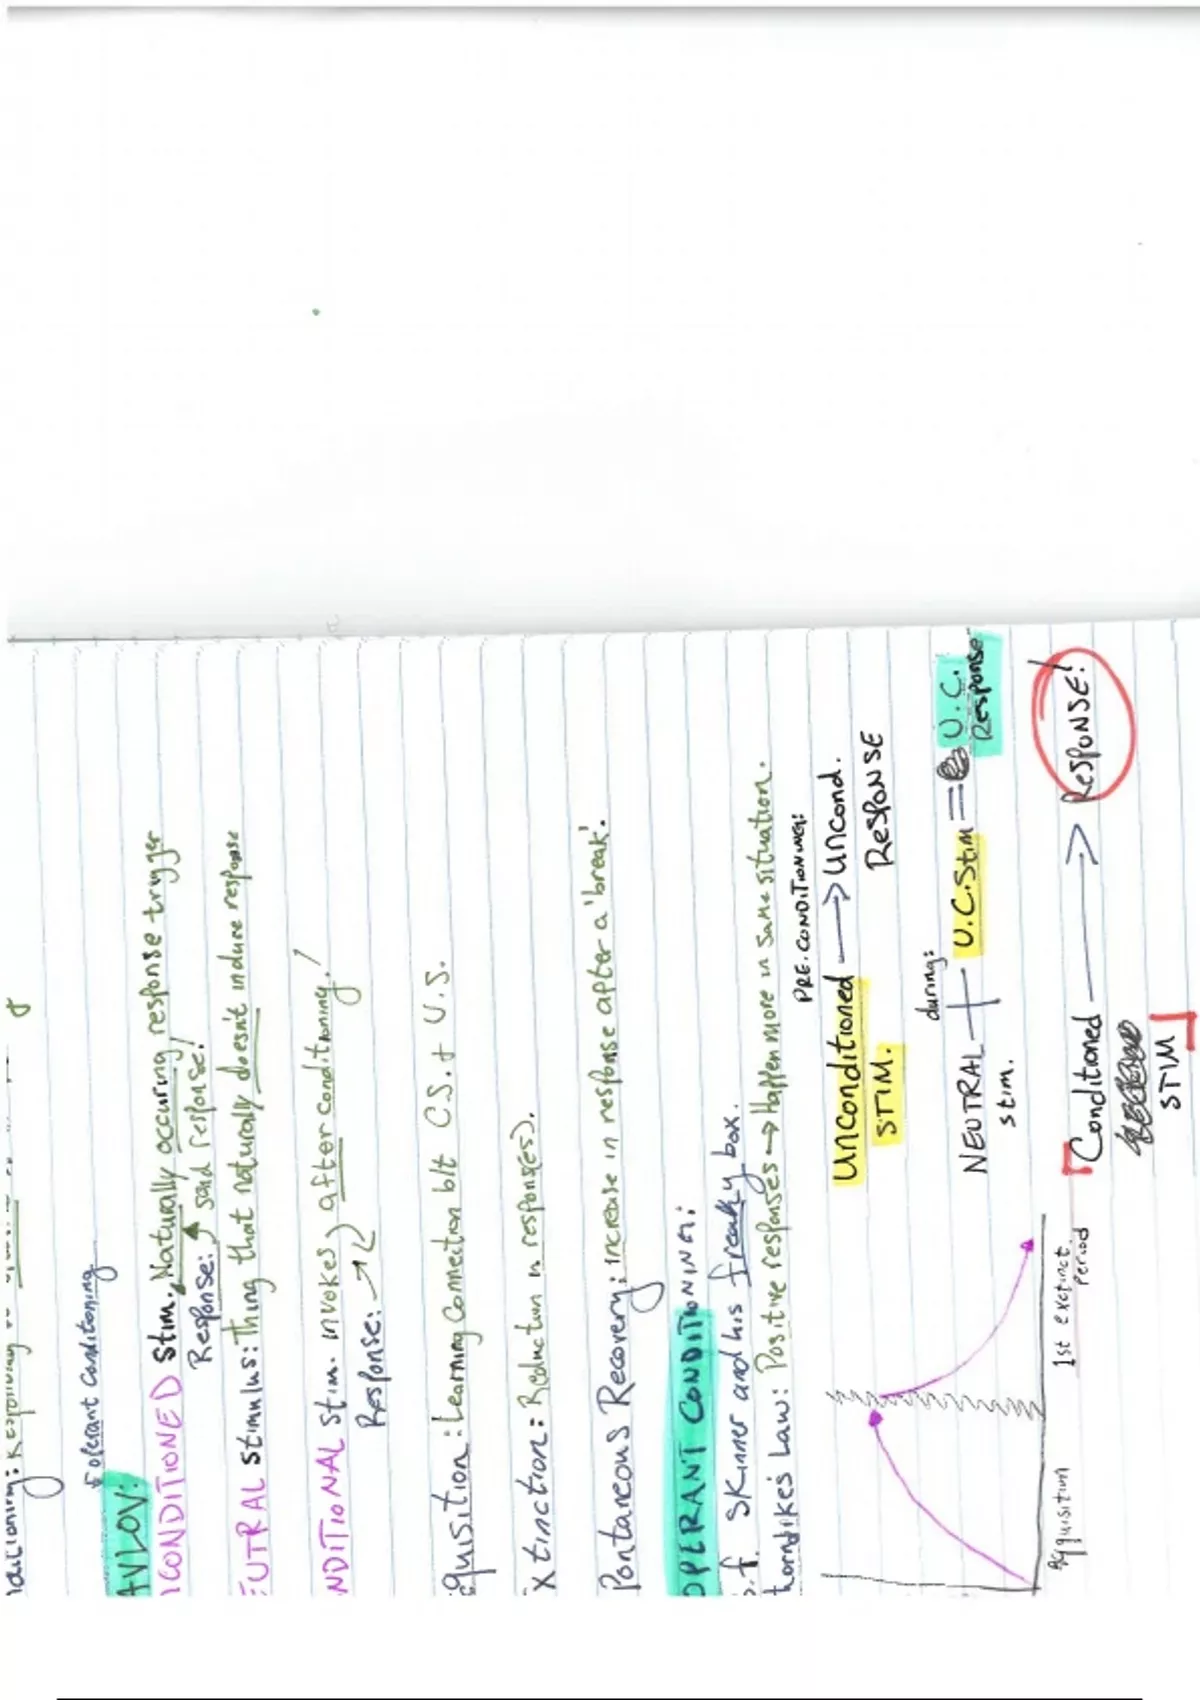 operant Conditioning
AVLOV:
CONDITIONED Stim. Naturally occuring response trigger
Response: said response!
EUTRAL stimulus: Thing that naturally doesn't indure response
NDITIONAL stim. invokes after conditioning!
Response:
quisition: Learning Connection b/t C.S. + U.S.
xtinction: Reduction in response(s).
Pontaneous Recovery: increase in response after a 'break'.
OPERANT CONDITIONING:
.f. Skinner and his freaky box.
horndikes Law: Positive responses → Happen more in same situation.
PRE.CONDITIONING:
Unconditioned → Uncond.
STIM. RESPONSE
during:
NEUTRAL + U.C.Stim = U.C.
stim. Response
Conditioned → RESPONSE!
STIM
Acquisition
1st extinct.
Period